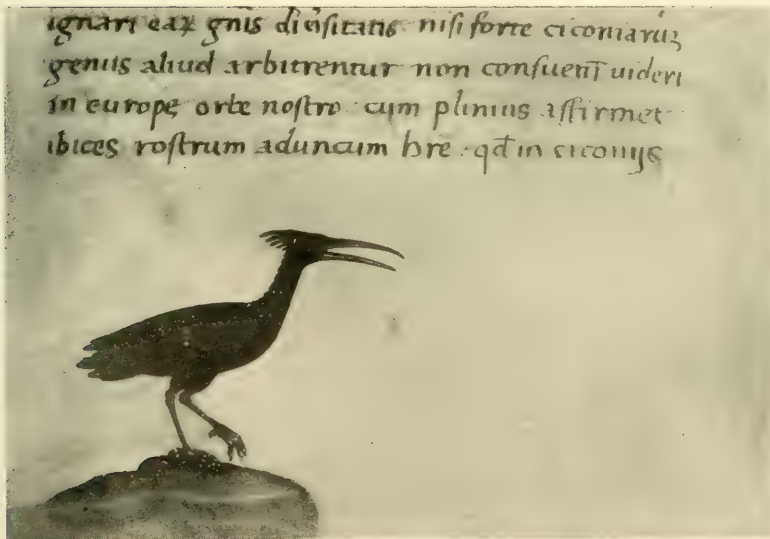 ignari eaꝝ gnis diũsitatis nisi forte ciconiaruꝫ
genus aliud arbitrentur non consueuer̃t uideri
in europę orbe nostro · cum plinius affirmet
ibices rostrum aduncum hr̃e · qđ in ciconijs